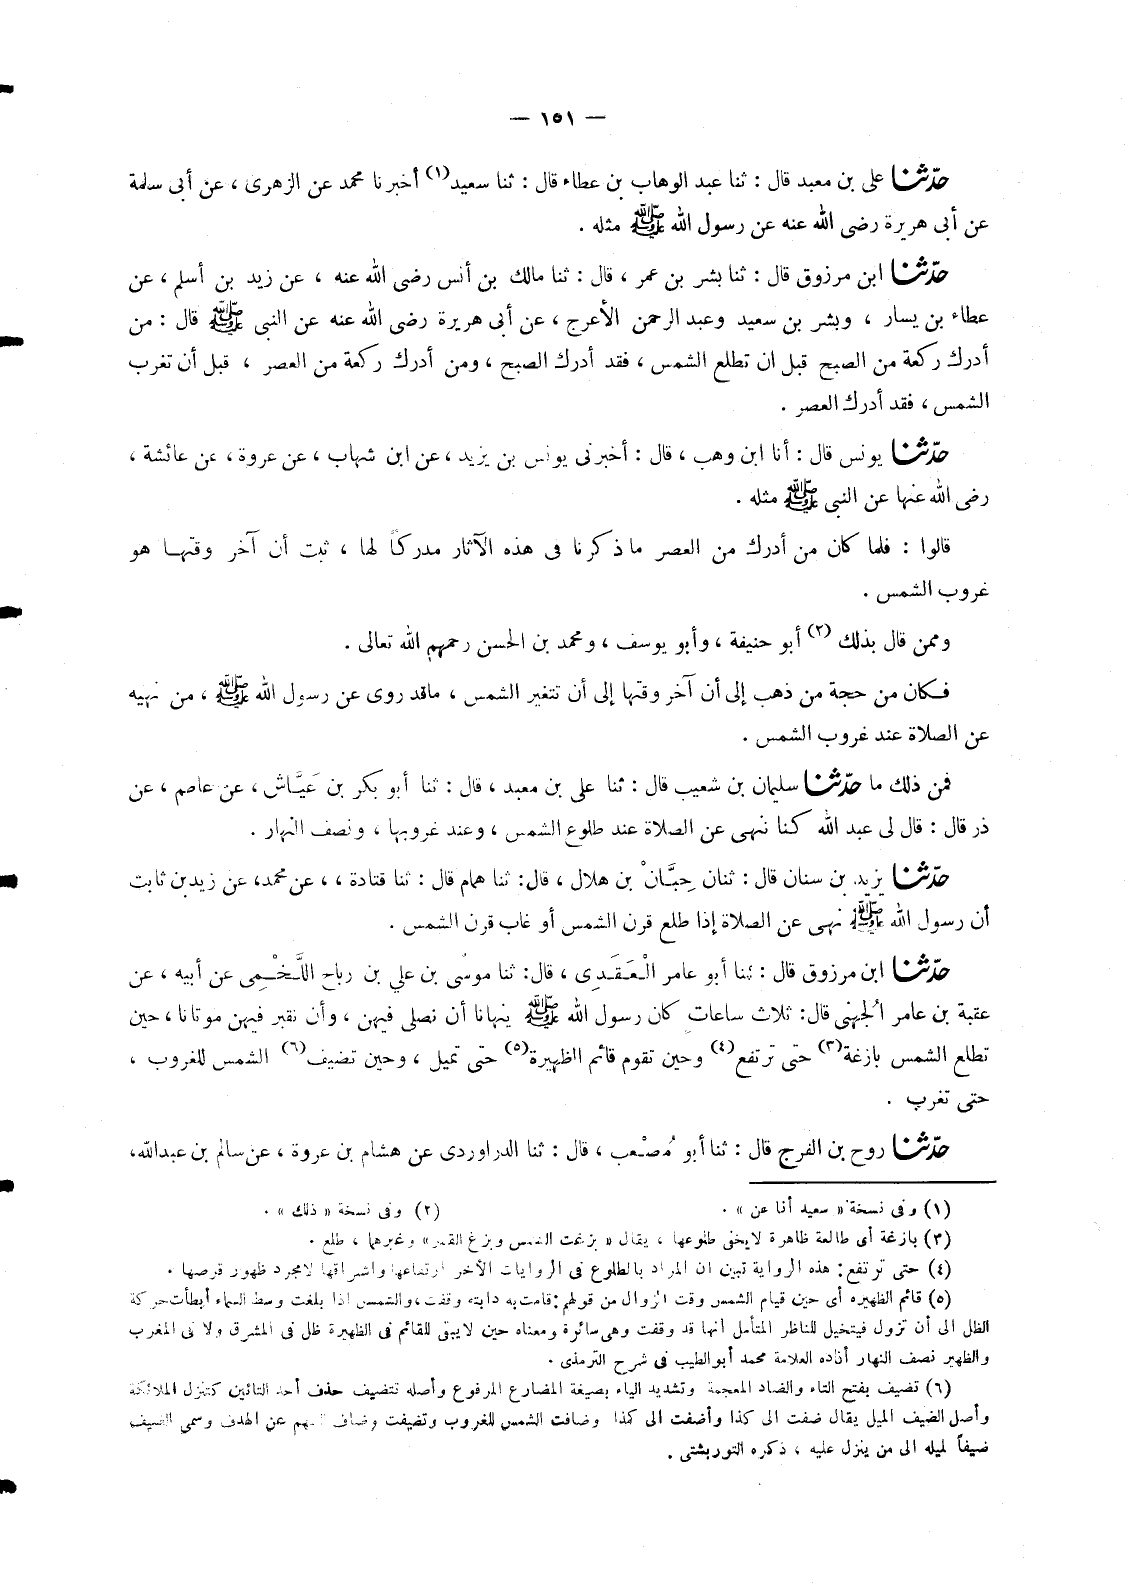 — ١٥١ —
حدّثنا على بن معبد قال : ثنا عبد الوهاب بن عطاء قال : ثنا سعيد(١) أخبرنا محمد عن الزهرى ، عن أبى سلمة
عن أبى هريرة رضى الله عنه عن رسول الله ﷺ مثله .
حدّثنا ابن مرزوق قال : ثنا بشر بن عمر ، قال : ثنا مالك بن أنس رضى الله عنه ، عن زيد بن أسلم ، عن
عطاء بن يسار ، وبشر بن سعيد وعبد الرحمن الأعرج ، عن أبى هريرة رضى الله عنه عن النبى ﷺ قال : من
أدرك ركعة من الصبح قبل ان تطلع الشمس ، فقد أدرك الصبح ، ومن أدرك ركعة من العصر ، قبل أن تغرب
الشمس ، فقد أدرك العصر .
حدّثنا يونس قال : أنا ابن وهب ، قال : أخبرنى يونس بن يزيد ، عن ابن شهاب ، عن عروة ، عن عائشة ،
رضى الله عنها عن النبى ﷺ مثله .
قالوا : فلما كان من أدرك من العصر ما ذكرنا فى هذه الآثار مدركاً لها ، ثبت أن آخر وقتها هو
غروب الشمس .
وممن قال بذلك (٢) أبو حنيفة ، وأبو يوسف ، ومحمد بن الحسن رحمهم الله تعالى .
فكان من حجة من ذهب إلى أن آخر وقتها إلى أن تتغير الشمس ، ماقد روى عن رسول الله ﷺ ، من نهيه
عن الصلاة عند غروب الشمس .
فمن ذلك ما حدّثنا سليمان بن شعيب قال : ثنا على بن معبد ، قال : ثنا أبو بكر بن عَيَّاش ، عن عاصم ، عن
ذر قال : قال لى عبد الله كنا ننهى عن الصلاة عند طلوع الشمس ، وعند غروبها ، ونصف النهار .
حدّثنا يزيد بن سنان قال : ثنان حِبَّانْ بن هلال ، قال: ثنا همام قال : ثنا قتادة ، ، عن محمد، عن زيد بن ثابت
أن رسول الله ﷺ نهى عن الصلاة إذا طلع قرن الشمس أو غاب قرن الشمس .
حدّثنا ابن مرزوق قال : ثنا أبو عامر الْعَقَدِى ، قال: ثنا موسُى بن علي بن رباح اللَّخْمِى عن أبيه ، عن
عقبة بن عامر الُجهنى قال: ثلاث ساعات كان رسول الله ﷺ ينهانا أن نصلى فيهن ، وأن نقبر فيهن موتانا ، حين
تطلع الشمس بازغة(٣) حتى ترتفع(٤) وحين تقوم قائم الظهيرة(٥) حتى تميل ، وحين تضيف(٦) الشمس للغروب ،
حتى تغرب .
حدّثنا روح بن الفرج قال : ثنا أبو مُصْعب ، قال : ثنا الدراوردى عن هشام بن عروة ، عن سالم بن عبدالله،
(١) وفى نسخة « سعيد أنا عن » . (٢) وفى نسخة « ذلك » .
(٣) بازغة أى طالعة ظاهرة لايخفى طلوعها ، يقال « بزغت الشمس وبزغ القمر» وغيرهما ، طلع .
(٤) حتى ترتفع: هذه الرواية تبين ان المراد بالطلوع فى الروايات الآخر ارتفاعها واشراقها لامجرد ظهور قرصها .
(٥) قائم الظهيره أى حين قيام الشمس وقت الزوال من قولهم : قامت به دابته وقفت ، والشمس اذا بلغت وسط السماء أبطأت حركة
الظل الى أن تزول فيتخيل للناظر المتأمل أنها قد وقفت وهى سائرة ومعناه حين لايبقى للقائم فى الظهيرة ظل فى المشرق ولا فى المغرب
والظهير نصف النهار أفاده العلامة محمد أبوالطيب فى شرح الترمذى .
(٦) تضيف بفتح التاء والضاد المعجمة وتشديد الياء بصيغة المضارع المرفوع وأصله تتضيف حذف أحد التائين كتنزل الملائكة
وأصل الضيف الميل يقال ضفت الى كذا وأضفت الى كذا وضافت الشمس للغروب وتضيفت وضاف السهم عن الهدف وسمى الضيف
ضيفاً لميله الى من ينزل عليه ، ذكره التوربشتى .